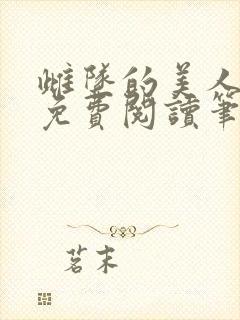 雌隊的美人
免費閱讀筆
茗末